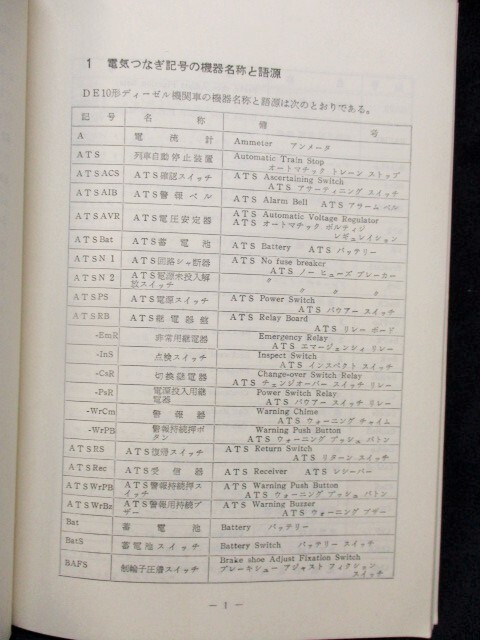 1 電気つなぎ記号の機器名称と語源
DE10形ディーゼル機関車の機器名称と語源は次のとおりである。
記号 名称 備考
A 電流計 Ammeter アンメータ
ATS 列車自動停止装置 Automatic Train Stop
オートマチック トレーン ストップ
ATSACS ATS確認スイッチ ATS Ascertaining Switch
ATS アサーティニング スイッチ
ATSAIB ATS警報ベル ATS Alarm Bell ATS アラーム ベル
ATSAVR ATS電圧安定器 ATS Automatic Voltage Regulator
ATS オートマチック ボルティジ
レギュレイション
ATSBat ATS蓄電池 ATS Battery ATS バッテリー
ATSN1 ATS回路しゃ断器 ATS No fuse breaker
ATS ノー ヒューズ ブレーカー
ATSN2 ATS電源未投入解 〃 〃 〃 〃
放スイッチ
ATSPS ATS電源スイッチ ATS Power Switch
ATS パウアー スイッチ
ATSRB ATS継電器盤 ATS Relay Board
ATS リレー ボード
-EmR 非常用継電器 Emergency Relay
ATS エマージェンシィ リレー
-InS 点検スイッチ Inspect Switch
ATS インスペクト スイッチ
-CsR 切換継電器 Change-over Switch Relay
ATS チェンジオーバー スイッチ リレー
-PsR 電源投入用継 Power Switch Relay
電器 ATS パウアー スイッチ リレー
-WrCm 警報器 Warning Chime
ATS ウォーニング チャイム
-WrPB 警報持続押ボ Warning Push Button
タン ATS ウォーニング プッシュ バトン
ATSRS ATS復帰スイッチ ATS Return Switch
ATS リターン スイッチ
ATSRec ATS受信器 ATS Receiver ATS レシーバー
ATSWrPB ATS警報持続押ス ATS Warning Push Button
イッチ ATS ウォーニング プッシュ バトン
ATSWrBz ATS警報用持続ブ ATS Warning Buzzer
ザー ATS ウォーニング ブザー
Bat 蓄電池 Battery バッテリー
BatS 蓄電池スイッチ Battery Switch バッテリー スイッチ
BAFS 制輪子圧着スイッチ Brake shoe Adjust Fixation Switch
ブレーキシュー アジャスト フィクション
スイッチ
— 1 —